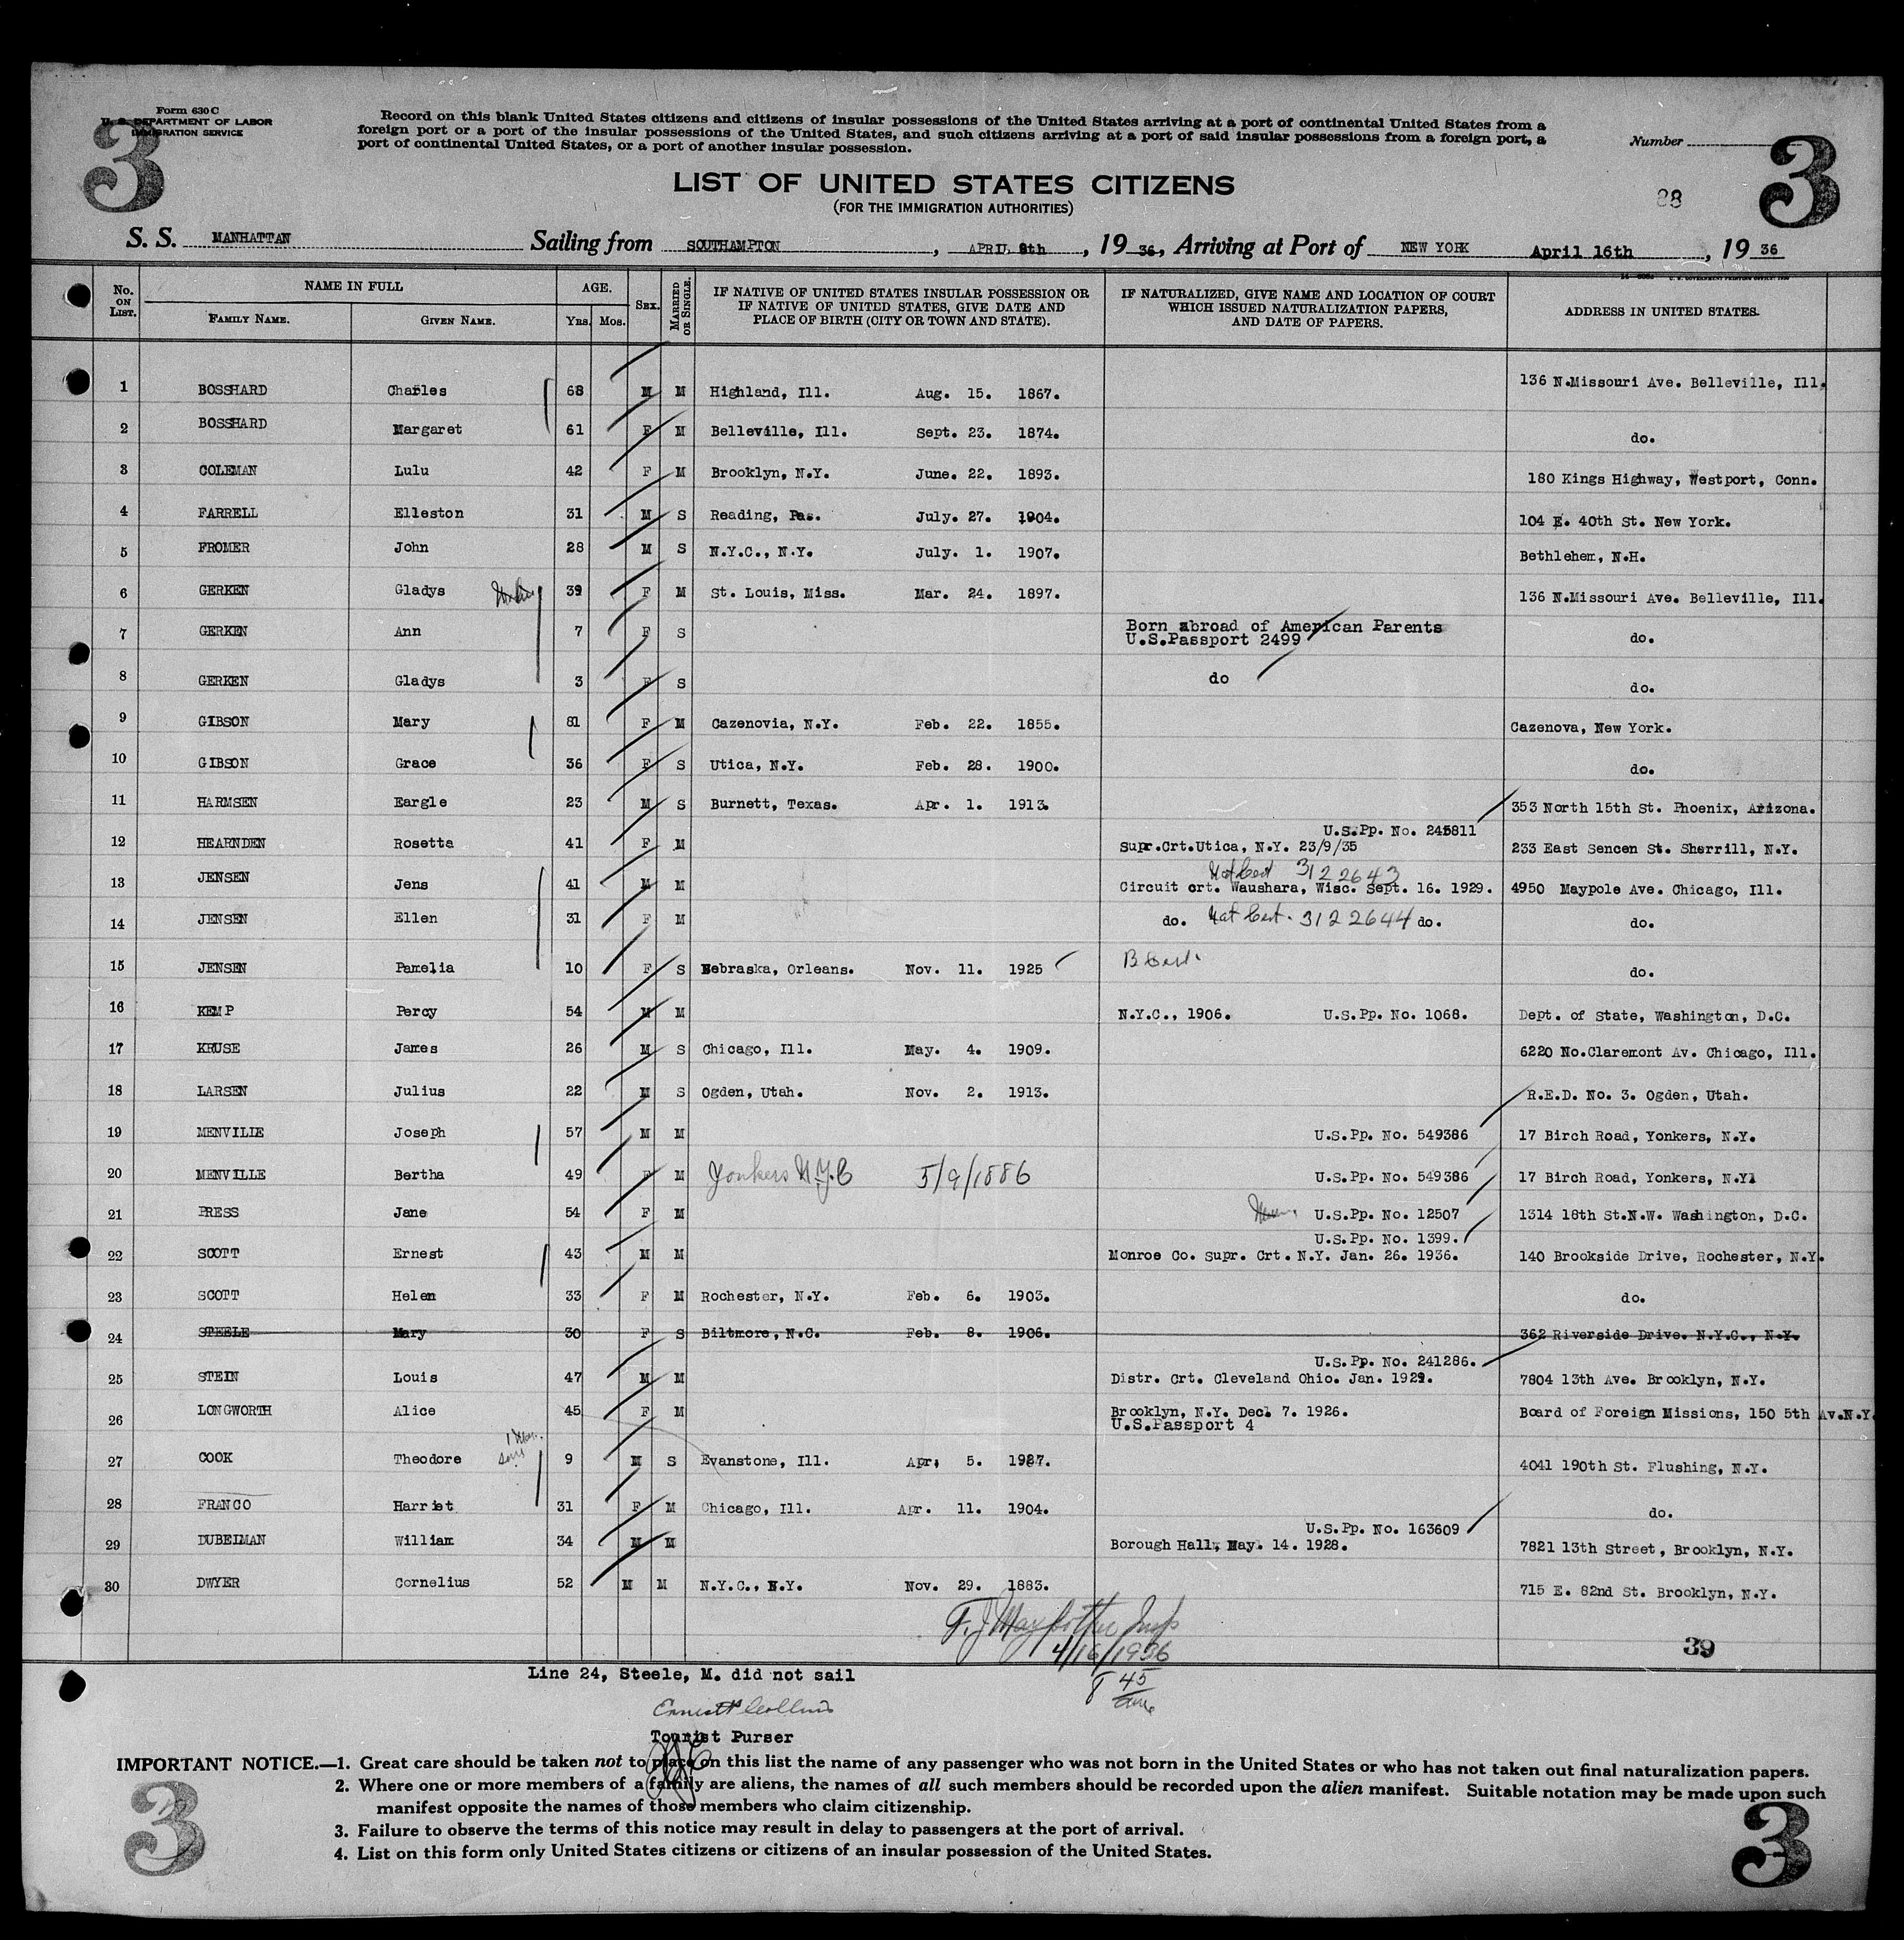 Form 630 C
U. S. DEPARTMENT OF LABOR
IMMIGRATION SERVICE
3
Record on this blank United States citizens and citizens of insular possessions of the United States arriving at a port of continental United States from a
foreign port or a port of the insular possessions of the United States, and such citizens arriving at a port of said insular possessions from a foreign port, a
port of continental United States, or a port of another insular possession.
Number
3
LIST OF UNITED STATES CITIZENS
(FOR THE IMMIGRATION AUTHORITIES)
88
S. S. MANHATTAN Sailing from SOUTHAMPTON, APRIL 8th, 1936, Arriving at Port of NEW YORK April 16th, 1936
No. ON LIST. NAME IN FULL FAMILY NAME. GIVEN NAME. AGE. YRS. MOS. SEX. MARRIED OR SINGLE. IF NATIVE OF UNITED STATES INSULAR POSSESSION OR IF NATIVE OF UNITED STATES, GIVE DATE AND PLACE OF BIRTH (CITY OR TOWN AND STATE). IF NATURALIZED, GIVE NAME AND LOCATION OF COURT WHICH ISSUED NATURALIZATION PAPERS, AND DATE OF PAPERS. ADDRESS IN UNITED STATES.
1 BOSSHARD Charles 68 M M Highland, Ill. Aug. 15. 1867. 136 N.Missouri Ave. Belleville, Ill.
2 BOSSHARD Margaret 61 F M Belleville, Ill. Sept. 23. 1874. do.
3 COLEMAN Lulu 42 F M Brooklyn, N.Y. June. 22. 1893. 180 Kings Highway, Westport, Conn.
4 FARRELL Elleston 31 M S Reading, Pas. July. 27. 1904. 104 E. 40th St. New York.
5 FROMER John 28 M S N.Y.C., N.Y. July. 1. 1907. Bethlehem, N.H.
6 GERKEN Gladys 39 F M St. Louis, Miss. Mar. 24. 1897. 136 N.Missouri Ave. Belleville, Ill.
7 GERKEN Ann 7 F S Born abroad of American Parents
U.S.Passport 2499 do.
8 GERKEN Gladys 3 F S do do.
9 GIBSON Mary 81 F M Cazenovia, N.Y. Feb. 22. 1855. Cazenova, New York.
10 GIBSON Grace 36 F S Utica, N.Y. Feb. 28. 1900. do.
11 HARMSEN Eargle 23 M S Burnett, Texas. Apr. 1. 1913. 353 North 15th St. Phoenix, Arizona.
U.S.Pp. No. 245811
12 HEARNDEN Rosetta 41 F M Supr.Crt.Utica, N.Y. 23/9/35 233 East Sencen St. Sherrill, N.Y.
Nat Cert 3122643
13 JENSEN Jens 41 M M Circuit crt. Waushara, Wisc. Sept. 16. 1929. 4950 Maypole Ave. Chicago, Ill.
14 JENSEN Ellen 31 F M do. Nat Cert. 3122644 do. do.
15 JENSEN Pamelia 10 F S Nebraska, Orleans. Nov. 11. 1925 B Cert. do.
16 KEMP Percy 54 M M N.Y.C., 1906. U.S.Pp. No. 1068. Dept. of State, Washington, D.C.
17 KRUSE James 26 M S Chicago, Ill. May. 4. 1909. 6220 No.Claremont Av. Chicago, Ill.
18 LARSEN Julius 22 M S Ogden, Utah. Nov. 2. 1913. R.E.D. No. 3. Ogden, Utah.
19 MENVILLE Joseph 57 M M U.S.Pp. No. 549386 17 Birch Road, Yonkers, N.Y.
20 MENVILLE Bertha 49 F M Yonkers N.Y.C 5/9/1886 U.S.Pp. No. 549386 17 Birch Road, Yonkers, N.Y.
21 PRESS Jane 54 F M U.S.Pp. No. 12507 1314 18th St.N.W. Washington, D.C.
U.S.Pp. No. 1399.
22 SCOTT Ernest 43 M M Monroe Co. Supr. Crt. N.Y. Jan. 26. 1936. 140 Brookside Drive, Rochester, N.Y.
23 SCOTT Helen 33 F M Rochester, N.Y. Feb. 6. 1903. do.
24 STEELE Mary 30 F S Biltmore, N.C. Feb. 8. 1906. 362 Riverside Drive. N.Y.C., N.Y.
U.S.Pp. No. 241286.
25 STEIN Louis 47 M M Distr. Crt. Cleveland Ohio. Jan. 1929. 7804 13th Ave. Brooklyn, N.Y.
26 LONGWORTH Alice 45 F M Brooklyn, N.Y. Dec. 7. 1926.
U.S.Passport 4 Board of Foreign Missions, 150 5th Av.N.Y.
27 COOK Theodore 9 M S Evanstone, Ill. Apr. 5. 1927. 4041 190th St. Flushing, N.Y.
28 FRANCO Harriet 31 F M Chicago, Ill. Apr. 11. 1904. do.
U.S.Pp. No. 163609
29 DUBELMAN William 34 M M Borough Hall, May. 14. 1928. 7821 13th Street, Brooklyn, N.Y.
30 DWYER Cornelius 52 M M N.Y.C., N.Y. Nov. 29. 1883. 715 E. 82nd St. Brooklyn, N.Y.
4/16/1936
39
Line 24, Steele, M. did not sail
8 45
Tourist Purser
IMPORTANT NOTICE.—1. Great care should be taken not to place on this list the name of any passenger who was not born in the United States or who has not taken out final naturalization papers.
2. Where one or more members of a family are aliens, the names of all such members should be recorded upon the alien manifest. Suitable notation may be made upon such
manifest opposite the names of those members who claim citizenship.
3. Failure to observe the terms of this notice may result in delay to passengers at the port of arrival.
4. List on this form only United States citizens or citizens of an insular possession of the United States.
3
3